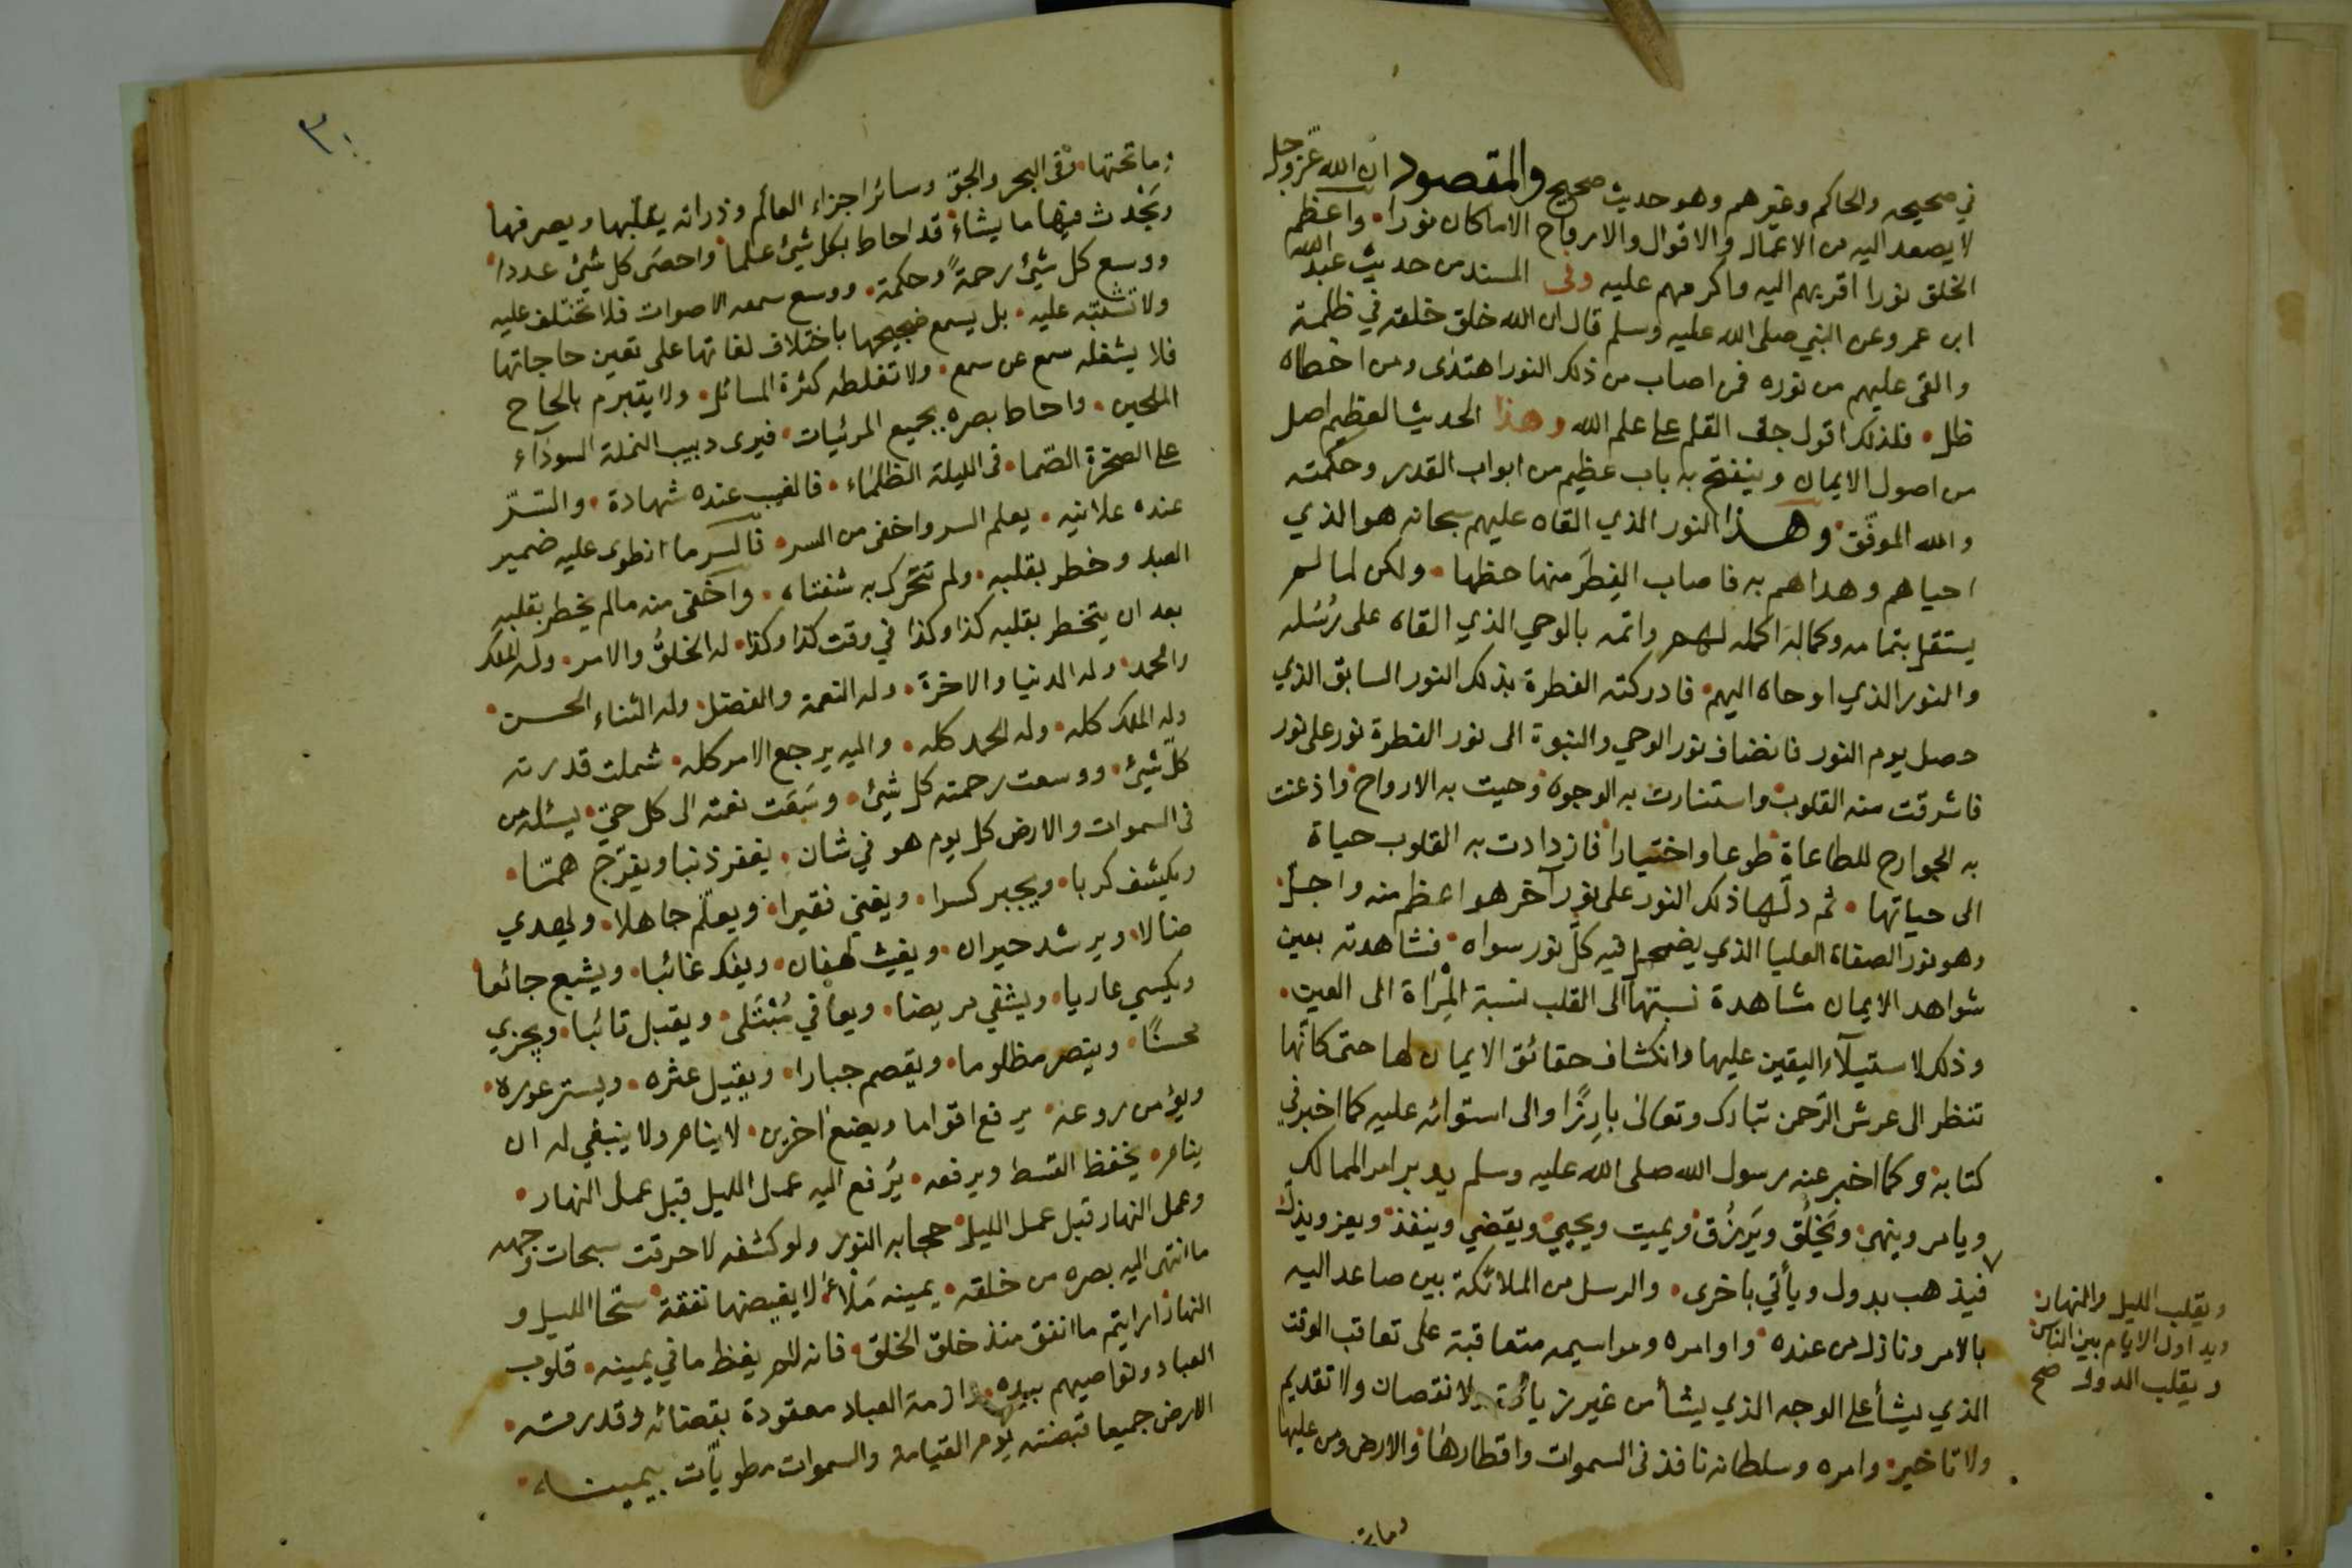 في صحيحه والحاكم وغيرهم وهو حديث صحيح والمقصود ان الله عز وجل
لا يصعد اليه من الاعمال والاقوال والارواح الا ما كان نورا واعظم
الخلق نورا اقربهم اليه واكرمهم عليه وفى المسند من حديث عبد الله
ابن عمرو عن النبي صلى الله عليه وسلم قال ان الله خلق خلقه في ظلمة
والقى عليهم من نوره فمن اصاب من ذلك النور اهتدى ومن اخطاه
ظل فلذلك اقول جف القلم على علم الله وهذا الحديث العظيم اصل
من اصول الايمان وينفتح به باب عظيم من ابواب القدر وحكمته
والله الموفق وهذا النور الذي القاه عليهم سبحانه هو الذي
احياهم وهداهم به فاصاب الفِطَر منها حظها ولكن لما لم
يستقل بتمامه وكماله اكمله لهم واتمه بالوحي الذي القاه على رُسُله
والنور الذي اوحاه اليهم فادركته الفطرة بذلك النور السابق الذي
حصل يوم النور فانضاف نور الوحي والنبوة الى نور الفطرة نور على نور
فاشرقت منه القلوب واستنارت به الوجوه وحيت به الارواح واذعنت
به الجوارح للطاعاة طوعا واختيارا فازدادت به القلوب حياة
الى حياتها ثم دلّها ذلك النور على نور آخر هو اعظم منه واجل
وهو نور الصفاة العليا الذي يضمحل فيه كل نور سواه فشاهدته بعين
شواهد الايمان مشاهدة نسبتها الى القلب نسبة المِرْاة الى العين
وذلك لاستيلآء اليقين عليها وانكشاف حقائق الايمان لها حتى كانّها
تنظر الى عرش الرّحمن تبارك وتعالى بارِزًا والى استوائه عليه كما اخبر في
كتابه وكما اخبر عنه رسول الله صلى الله عليه وسلم يدبر امر الممالك
ويامر وينهى ويَخْلُق ويَرزُق ويميت ويحيى ويقضي وينفذ ويعز ويذل
فيذهب بدول ويأتي باخرى والرسل من الملائكة بين صاعد اليه
بالامر ونازل من عنده واوامره ومراسيمه متعاقبة على تعاقب الوقت
الذي يشأ على الوجه الذي يشأ من غير زيادة ولا نقصان ولا تقديم
ولا تاخير وامره وسلطانه نافذ فى السموات واقطارها والارض ومن عليها
ويقلب الليل والنهار
ويداول الايام بين الناس
ويقلب الدول صح
٣٠
وما تحتها وفى البحر والجوّ وسائر اجزاء العالم وذراته يقلّبها ويصرفها
ويُحْدث فيها ما يشاء قد احاط بكل شيئ علما واحصَى كل شيئ عددا
ووسع كل شيئ رحمةً وحكمة ووسع سمعه الاصوات فلا تختلف عليه
ولا تشتبه عليه بل يسمع ضجيجها باختلاف لغاتها على تفنن حاجاتها
فلا يشغله سمع عن سمع ولا تغلطه كثرة المسائل ولا يتبرم بالحاح
الملحين واحاط بصره بجميع المرئيات فيرى دبيب النملة السودآء
على الصخرة الصّما فى الليلة الظلماء فالغيب عنده شهادة والسّر
عنده علانيه يعلم السر واخفى من السر فالسر ما انطوى عليه ضمير
العبد وخطر بقلبه ولم تتحرك به شفتاه واخفى منه مالم يخطر بقلبه
بعد ان يتخطر بقلبه كذا وكذا في وقت كذا وكذا له الخلقُ والامر وله الملك
والحمد وله الدنيا والاخرة وله النعمة والفضل وله الثناء الحسن
وله الملك كله وله الحمد كله واليه يرجع الامر كله شملت قدرته
كلّ شيئ ووسعت رحمته كل شيئ وسَبَقت نعمته الى كل حيّ يسئله من
فى السموات والارض كل يوم هو في شان يغفر ذنبا ويفرّج همّا
ويكشف كربا ويجبر كسرا ويغني فقيرا ويعلّم جاهلا ويهدي
ضالا ويرشد حيران ويغيث لهفان ويفك غائبا ويشبع جائعا
ويكسي عاريا ويشفي مريضا ويعافي مُبْتَلى ويقبل تائبا ويجزي
محسنًا وينصر مظلوما ويقصم جبارا ويقيل عثره ويستر عوره
ويؤمن روعه يرفع اقواما ويضع اخرين لا ينام ولا ينبغي له ان
ينام يخفظ القسط ويرفعه يُرفع اليه عمل الليل قبل عمل النهار
وعمل النهار قبل عمل الليل حجابه النور ولو كشفه لاحرقت سبحات وجهه
ما انتهى اليه بصره من خلقه يمينه مَلْأى لا يغيضها نفقة سحّا الليل و
النهار ارايتم ما انفق منذ خلق الخلق فانه لم يغظ ما في يمينه قلوب
العباد ونواصيهم بيده وازمة العباد معقودة بقضائه وقدرته
الارض جميعا قبضته يوم القيامة والسموات مطويّات بيمينه